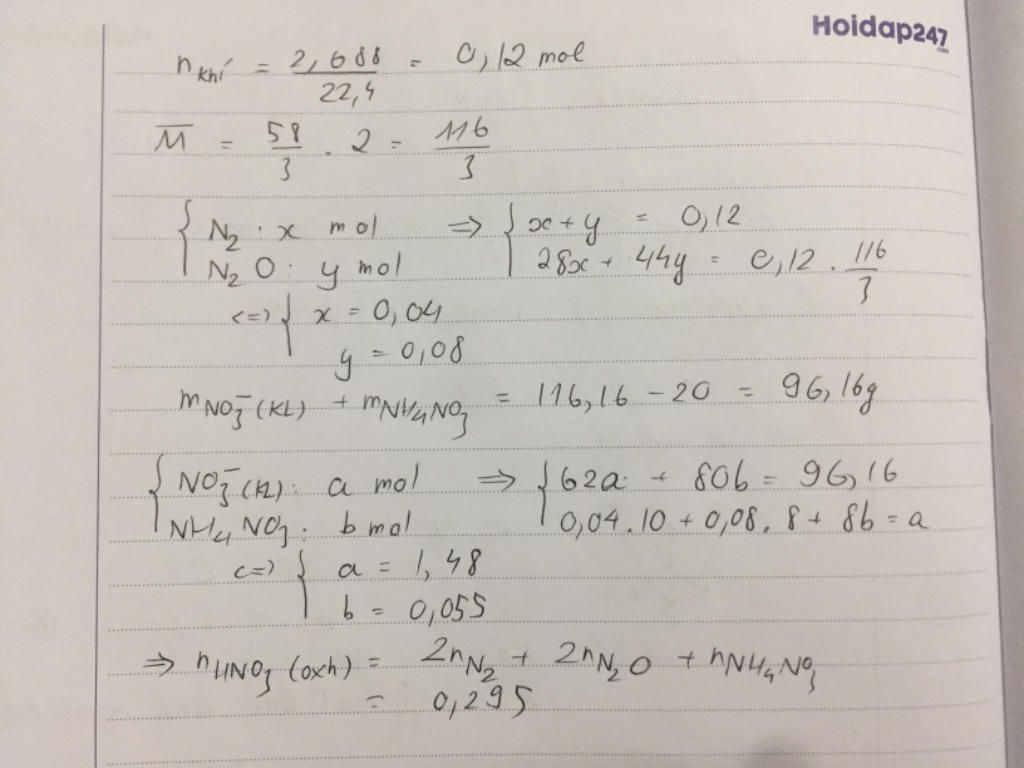 Hoidap247
.com
n khí = 2,688 / 22,4 = 0,12 mol
M̅ = 58/3 . 2 = 116/3
{ N₂ : x mol ⇒ { x + y = 0,12
N₂O : y mol 28x + 44y = 0,12 . 116/3
<=> { x = 0,04
y = 0,08
m NO₃⁻ (KL) + m NH₄NO₃ = 116,16 – 20 = 96,16g
{ NO₃⁻ (KL) : a mol ⇒ { 62a + 80b = 96,16
NH₄NO₃ : b mol 0,04.10 + 0,08.8 + 8b = a
<=> { a = 1,48
b = 0,055
⇒ n HNO₃ (oxh) = 2n N₂ + 2n N₂O + n NH₄NO₃
= 0,295